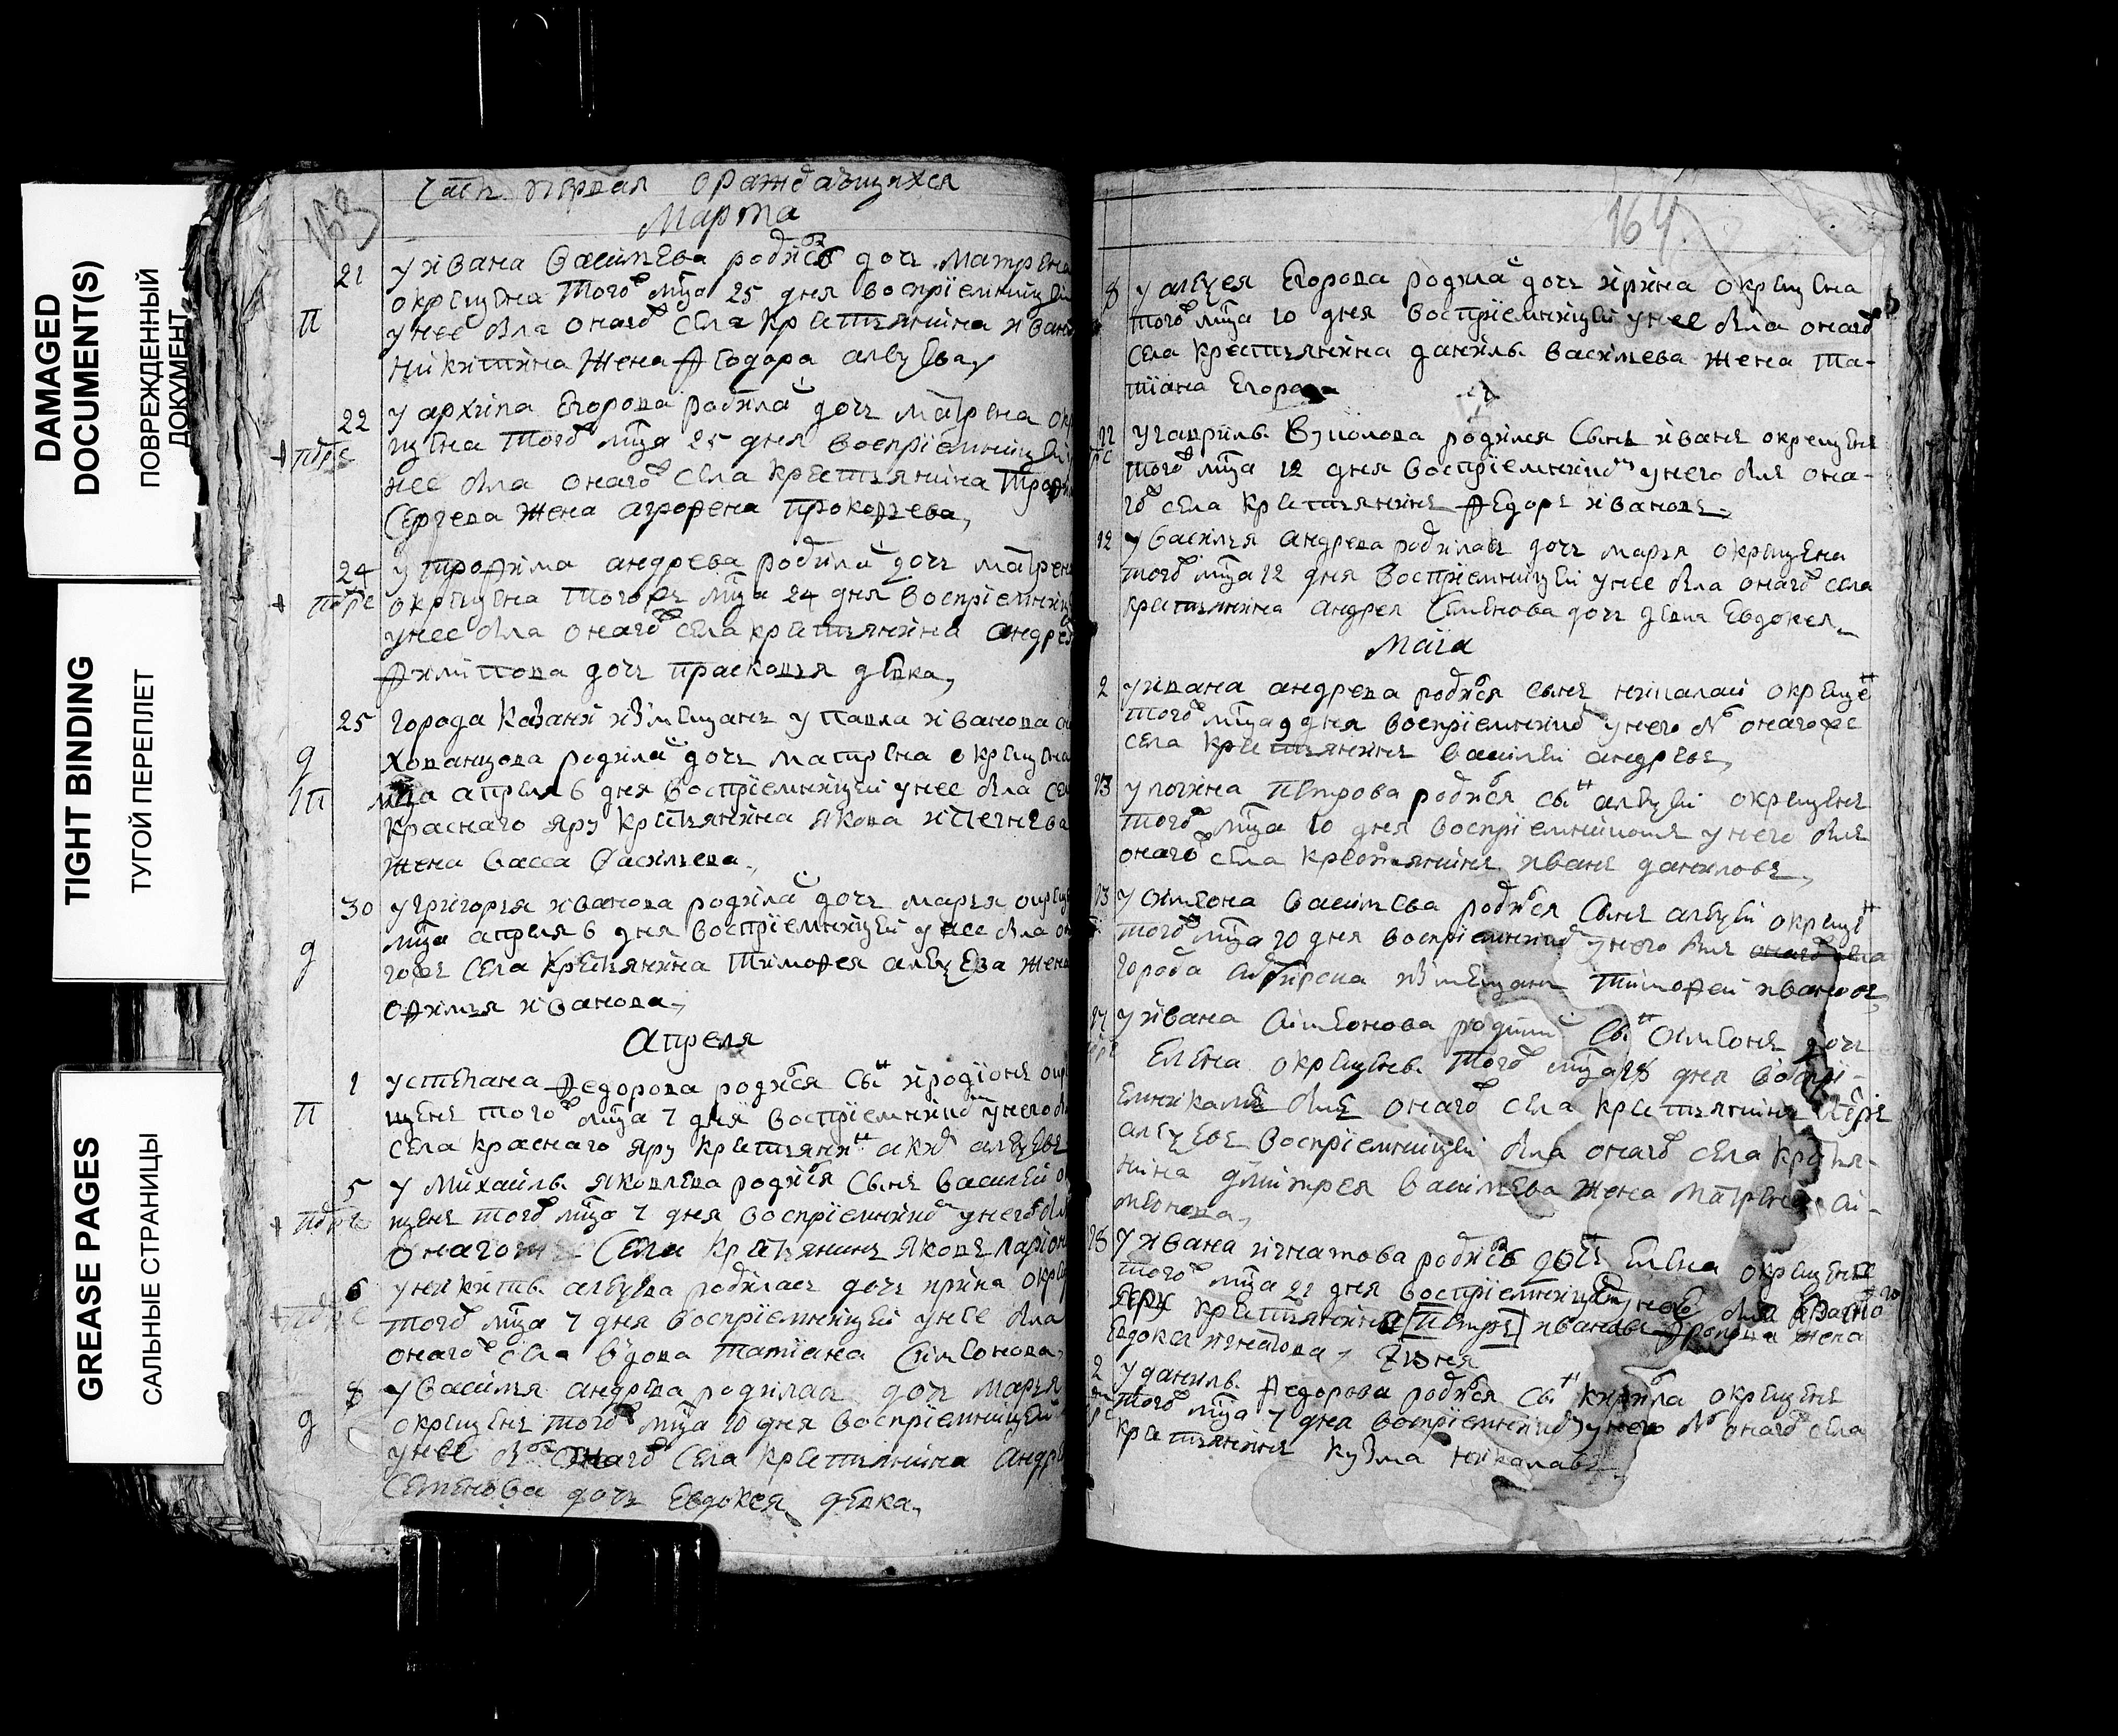 DAMAGED
DOCUMENT(S)
ПОВРЕЖДЕННЫЙ
ДОКУМЕНТ
TIGHT BINDING
ТУГОЙ ПЕРЕПЛЕТ
GREASE PAGES
САЛЬНЫЕ СТРАНИЦЫ
163
Часть первая о раждающихся
Марта
21 У ивана васильева родись дочь матрена
окрещена того мца 25 дня восприемницей
п у нее была онаго села крестьянина ивана
никитина жена Феодора алеѯева,
22 У архипа егорова родилась дочь матрена ок
щена того мца 25 дня восприемницей
нее была онаго села крестьянина
Сергеева жена агрофена прокофьева,
24 У трофима андреева родила дочь матрена
окрещена тогоже мца 24 дня восприемниц
у нее была онаго села крестьянина андрея
Филипова дочь прасковья девка,
25 города казани из мещанъ у павла иванова
хованцова родила дочь матрена окрещена
мца апреля 6 дня восприемницей у нее была се
краснаго яру крестьянина якова
жена васса васильева,
30 У григорья иванова родила дочь марья окрещ
мца апреля 6 дня восприемницей у нее была о
гоже села крестьянина тимофея алеѯева жена
офимья иванова,
Апреля
1 У степана Федорова родися сынъ иродионъ окр
п щенъ того мца 7 дня восприемникомъ у него
села краснаго яру крестьянинъ алеѯевъ
5 У михаила яковлева родися сынъ василей о
щенъ того мца 7 дня восприемникомъ у него
онагоже села крестьянинъ яковъ
6 У никиты алеѯева родилась дочь ирина окре
того мца 7 дня восприемницей у нее была
онаго села вдова татиана симеонова,
8 У василья андреева родилась дочь марья
окрещенъ того мца 10 дня восприемницей
у нее онаго села крестьянина андрея
семенова дочь евдокея девка,
164
8 У алеѯея егорова родила дочь ирина окрещена
того мца 10 дня восприемницей у нее была онаго
села крестьянина данилы васильева жена та-
тиана егорова
У гаврилы родился сынъ иванъ окрещенъ
того мца 12 дня восприемникомъ у него былъ она-
го села крестьянинъ Федоръ ивановъ,
12 У василья андреева родилась дочь марья окрещена
того мца 12 дня восприемницей у нее была онаго села
крестьянина андрея семенова дочь девка евдокея,
маиа
2 У ивана андреева родися сынъ николай окрещенъ
того мца 9 дня восприемникомъ у него онагоже
села крестьянинъ василей андреевъ,
13 У логина петрова родися сынъ алеѯей окрещенъ
того мца 20 дня восприемникомъ у него былъ
онаго села крестьянинъ иванъ даниловъ,
13 У симеона васильева родися сынъ алеѯей окрещенъ
того мца 20 дня восприемникомъ у него былъ
города из мещанъ тимофей ивановъ,
17 У ивана симеонова родили сынъ симеонъ дочь
елена окрещены того мца дня воспри-
емниками былъ онаго села крестьянинъ
алеѯевъ восприемницей была онаго села крестья-
нина димитрея васильева жена матрена си-
меонова,
18 У ивана игнатова родись дочь елена окрещены
того мца 21 дня восприемницей была краснаго
яру крестьянина [петръ] иванова жена
евдокея игнатова, июня
2 У данилы Федорова родися сынъ кирила окрещенъ
того мца 7 дня восприемникомъ у него онаго села
крестьянинъ кузма николаевъ